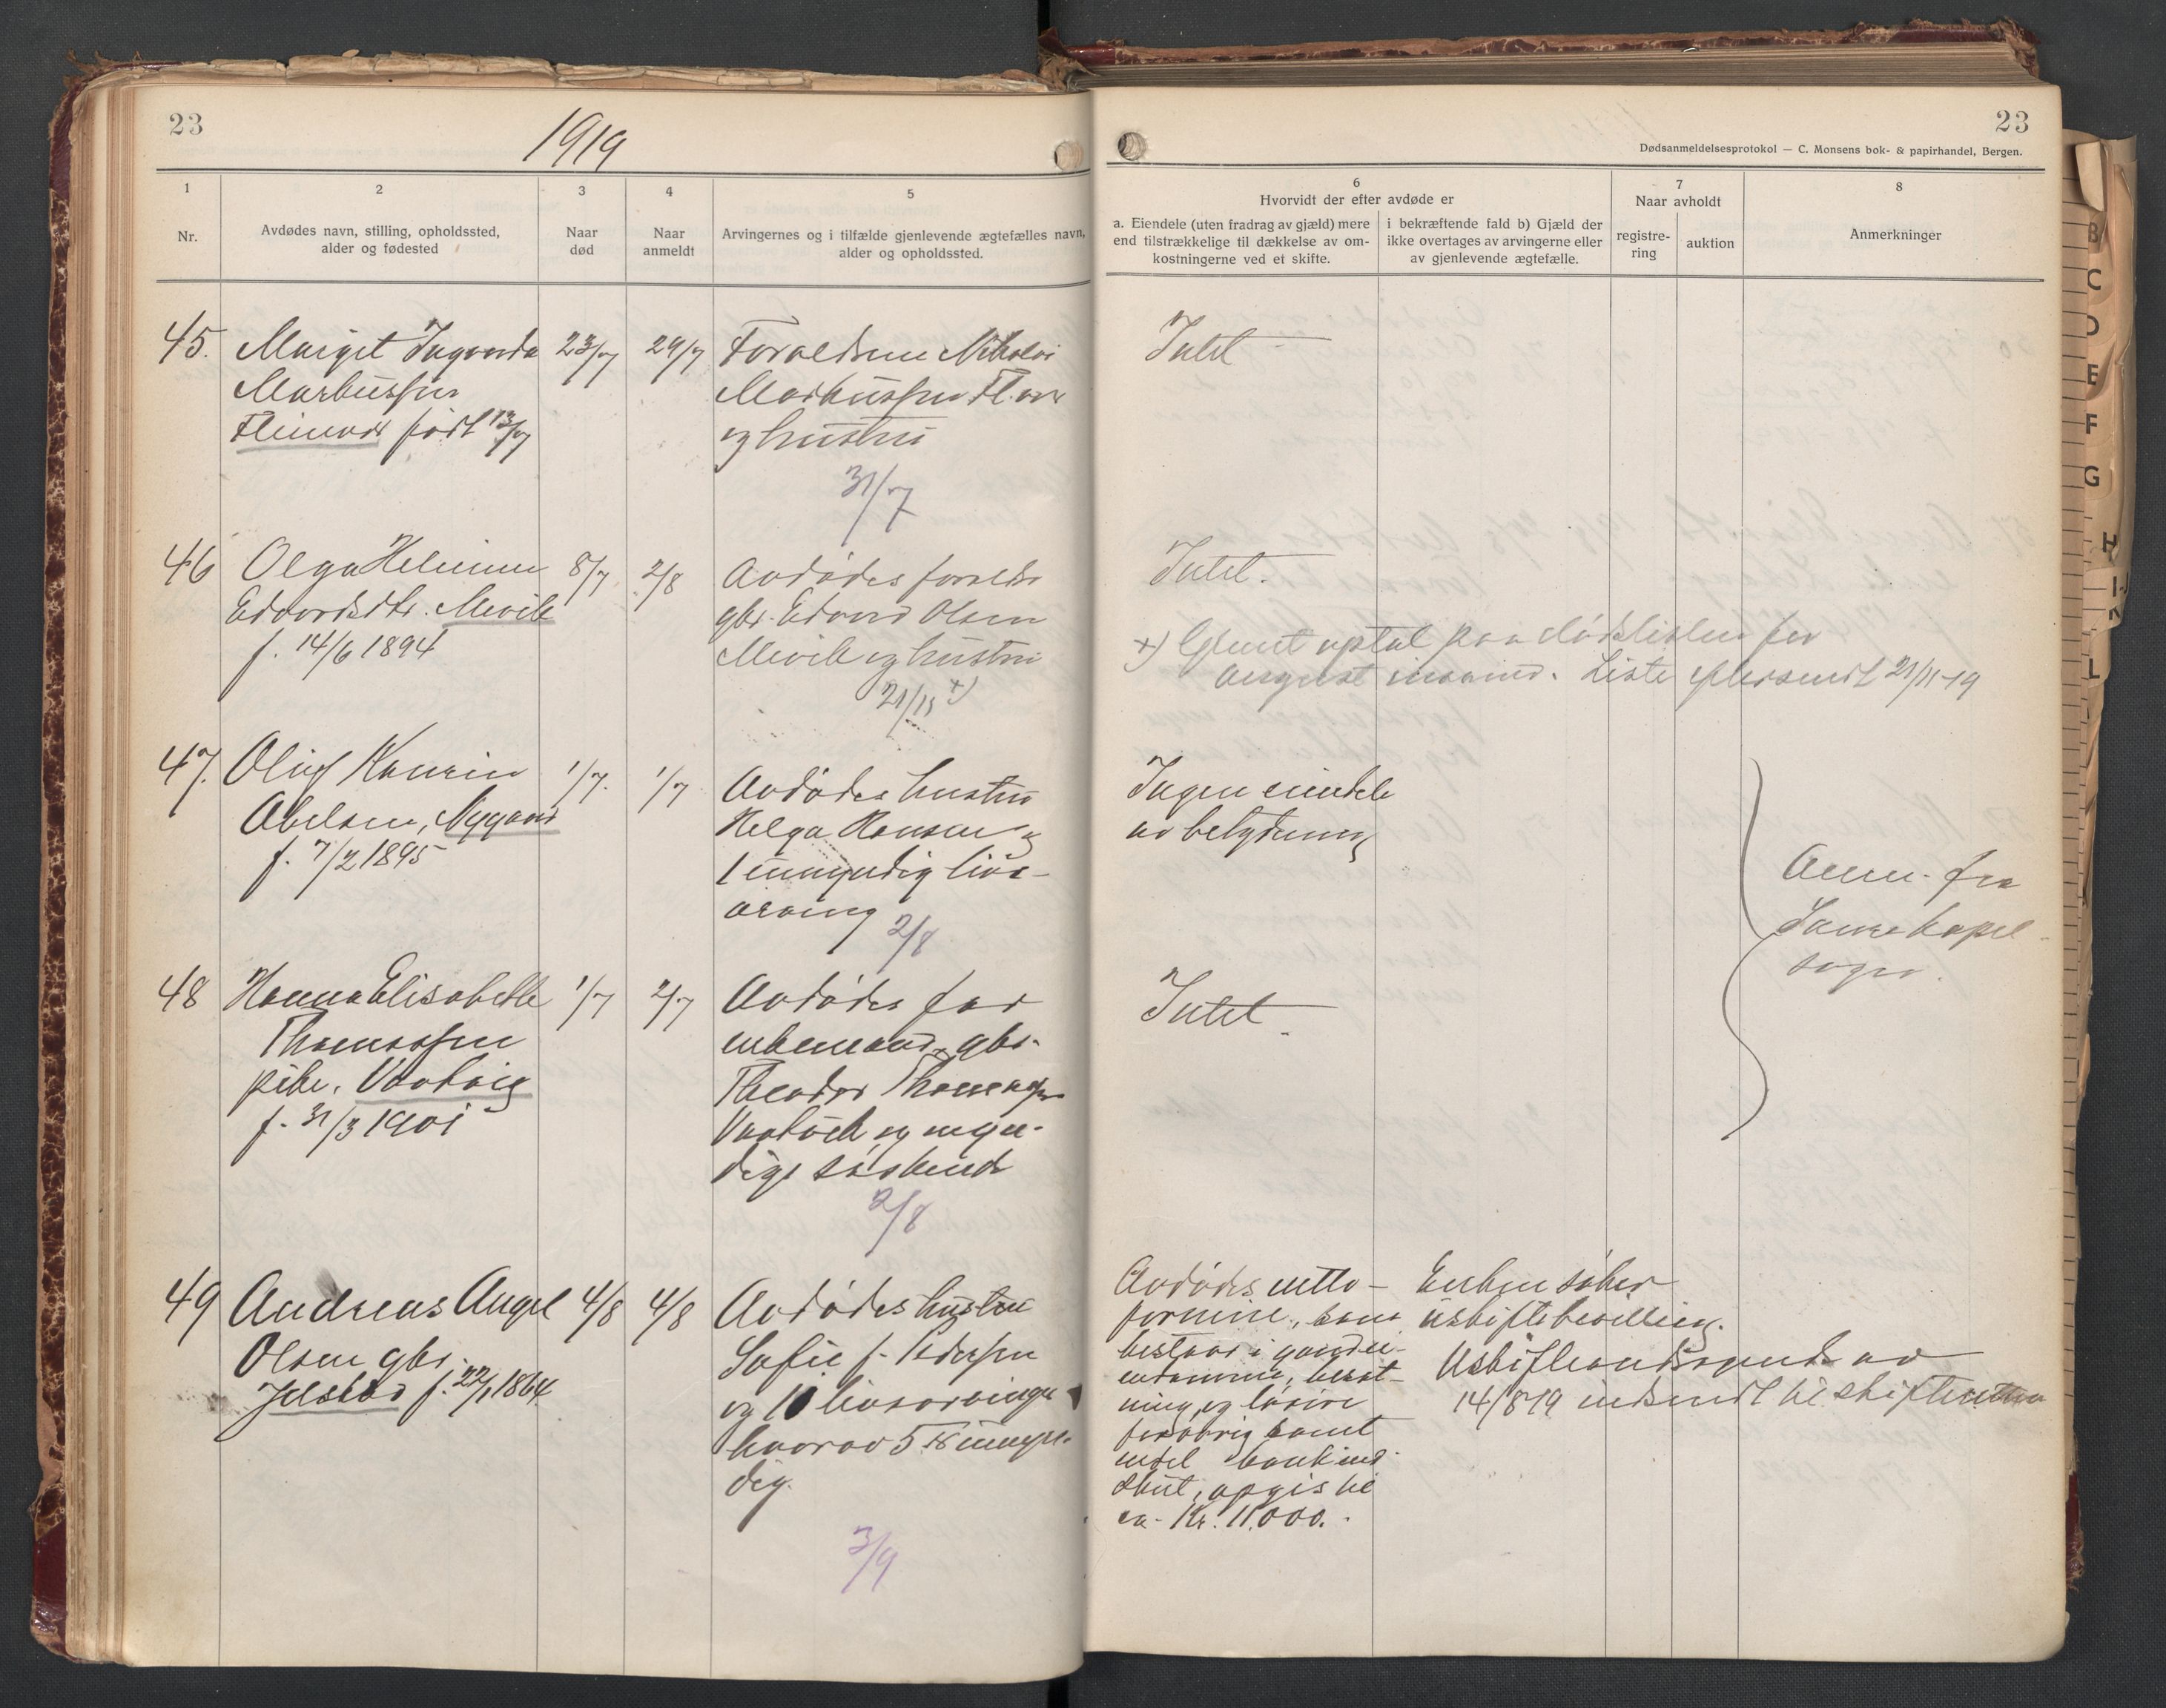 23
1919
1
2
3
4
5
Nr.
Avdødes navn, stilling, opholdssted,
alder og fødested
Naar
død
Naar
anmeldt
Arvingernes og i tilfælde gjenlevende ægtefælles navn,
alder og opholdssted.
45. Margit Ingvarda 23/7 29/7 Forældrene Nikolai
Markussen
Markussen
født 13/7
og hustru
31/7
46 Olga Helmine 8/7 2/8 Avdødes forældre
Edvardsdtr. Mevik
gbr. Edvard Olsen
f. 14/6 1894
Mevik og hustru
21/11 +)
47. Oluf 1/7. 1/7 Avdødes hustru
Abelsen, Nygaard
Helga Hansen og
f. 7/2 1895
1 umyndig livs-
arving
2/8
48 Hanna Elisabeth 1/7 2/7 Avdødes far
Thomassen
enkemand, gbr.
pike,
Theodor Thomassen
f. 31/3 1901
og myn-
dige søskende
2/8
49 Andreas Angel 4/8 4/8 Avdødes hustru
Olsen gbr.
Sofie f. Pedersen
Jelstad f. 22/1 1864
og 10 livsarvinger
hvorav 5 umyn-
dig.
3/9
23
Dødsanmeldelsesprotokol — C. Monsens bok- & papirhandel, Bergen.
6
Hvorvidt der efter avdøde er
a. Eiendele (uten fradrag av gjæld) mere
end tilstrækkelige til dækkelse av om-
kostningerne ved et skifte.
i bekræftende fald b) Gjæld der
ikke overtages av arvingerne eller
av gjenlevende ægtefælle.
7
Naar avholdt
registre-
ring
auktion
8
Anmerkninger
Intet
Intet.
+) Glemt optat paa dødslisten for
august maaned. Liste eftersendt 21/11-19
Ingen eiendele
av betydning
Anm. fra
kapel-
sogn.
Intet.
Avdødes netto-
formue, som
bestaar i gaardei-
endomme, besæt-
ning, og løsøre
forøvrig samt
endel bankind-
skut, opgis til
ca. Kr. 11.000.
Enken søker
uskiftebevilling.
Uskifteandragende av
14/8 19 indsendt til skifteretten
B
C
D
E
F
G
H
L